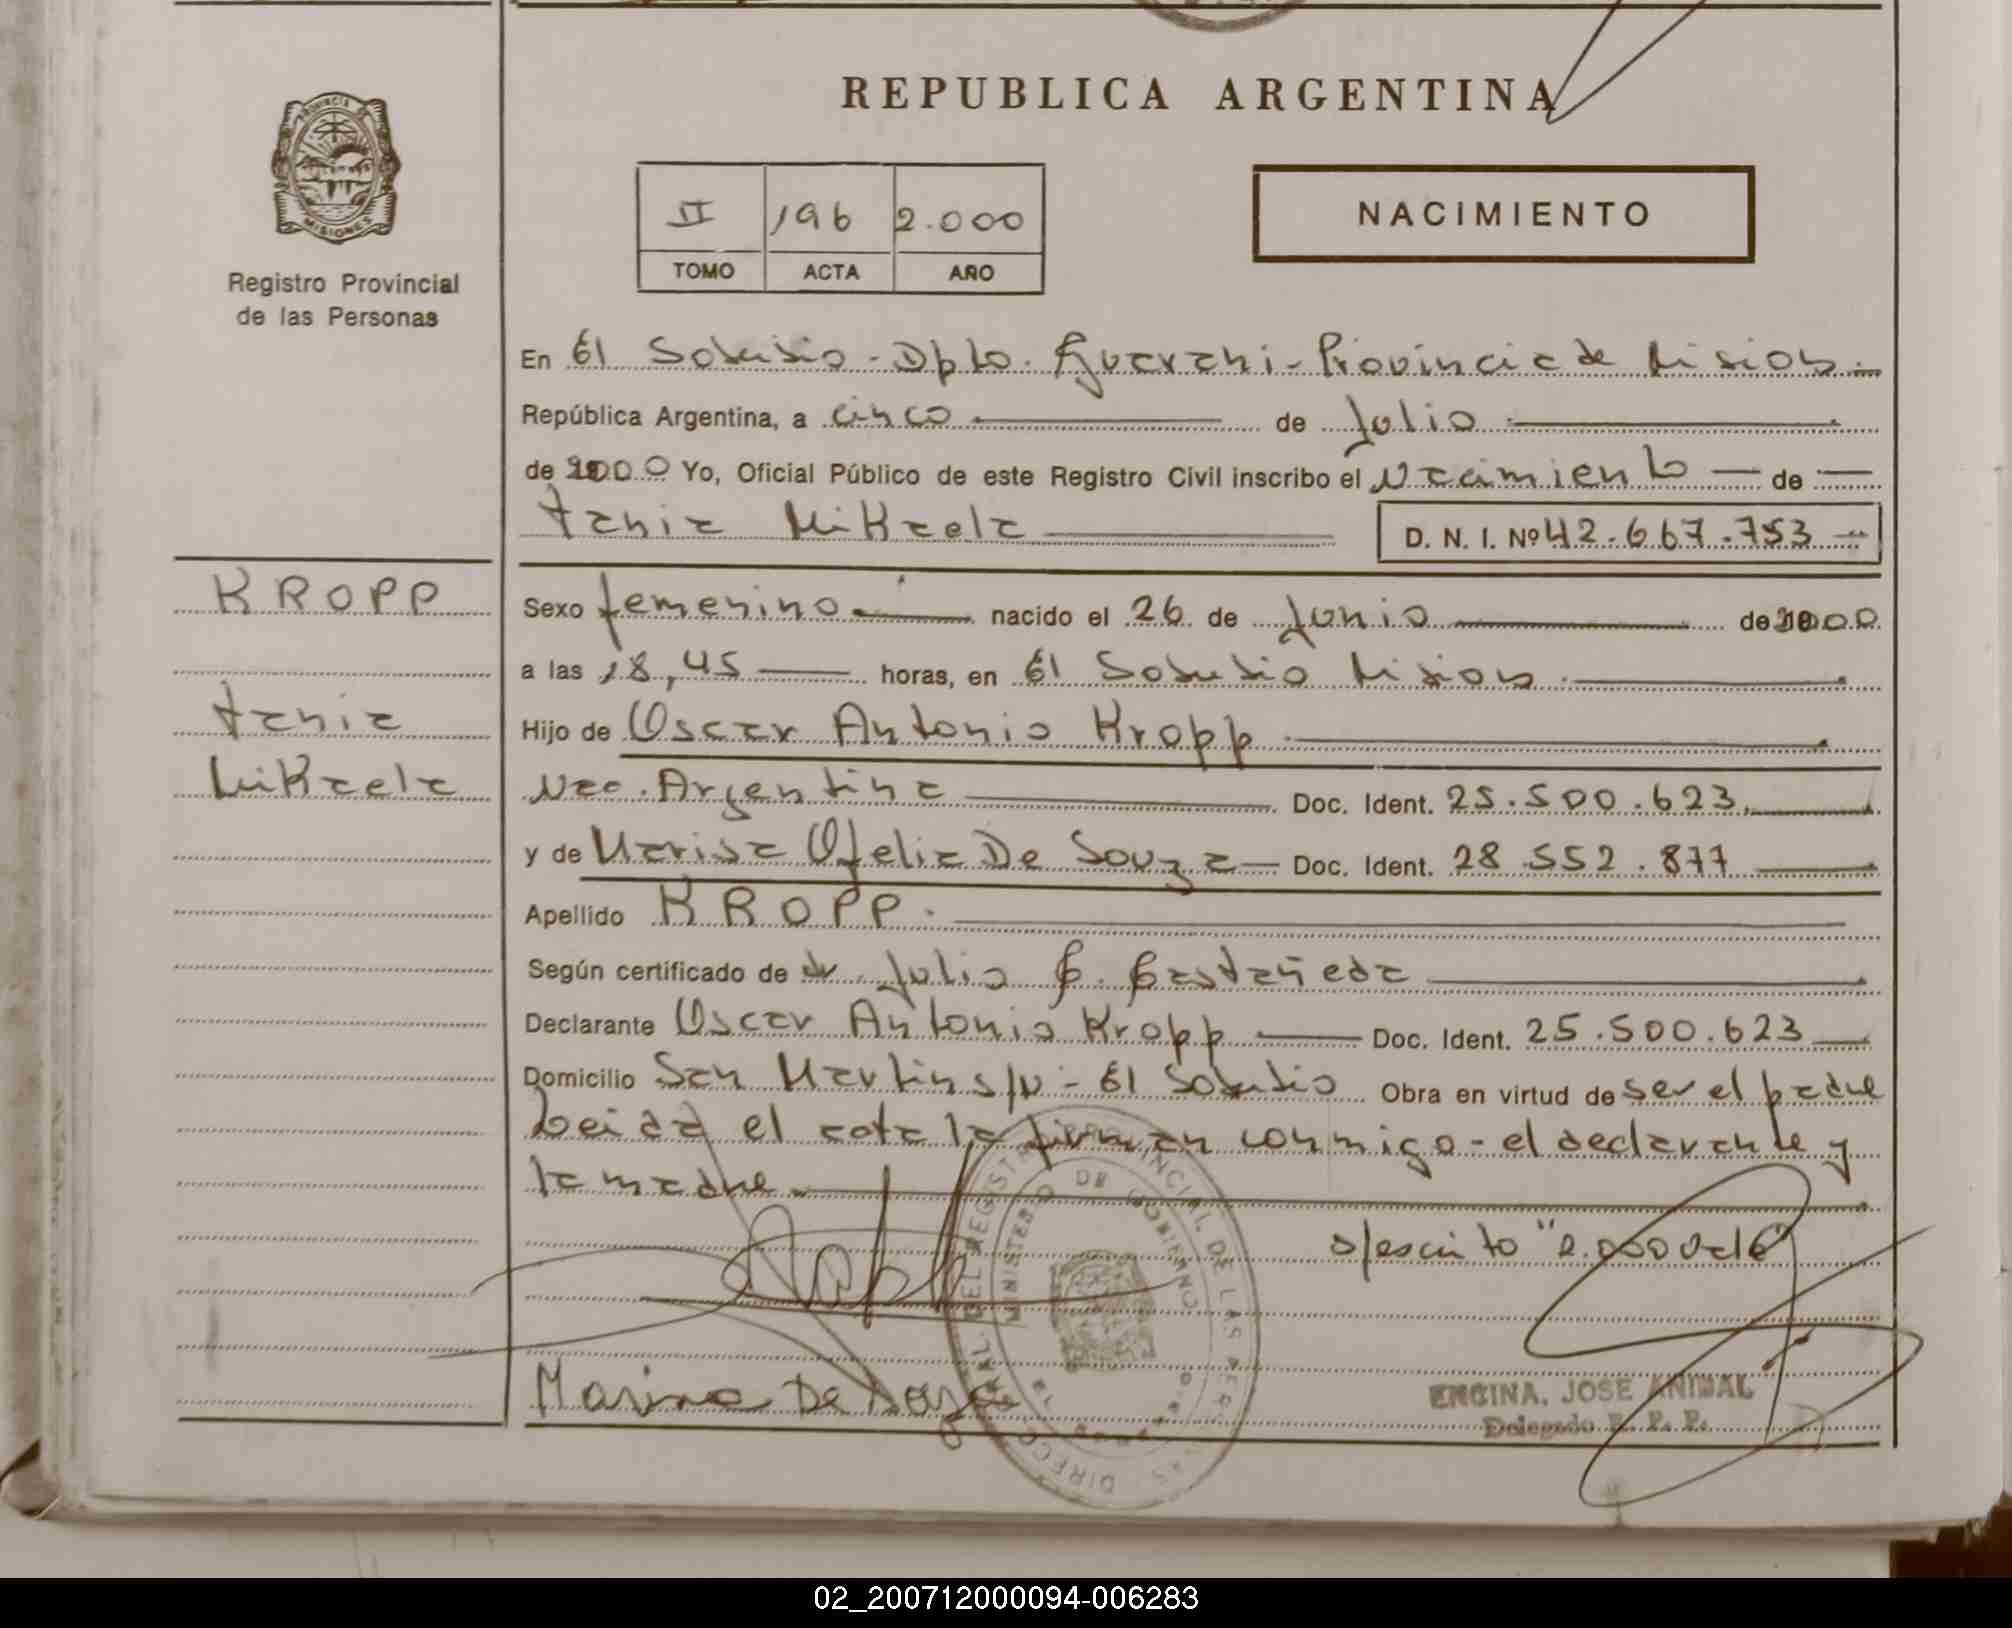 REPUBLICA ARGENTINA
PROVINCIA DE MISIONES
Registro Provincial
de las Personas
II 196 2.000
TOMO ACTA AÑO
NACIMIENTO
En El Soberbio - Dpto. Guarani - Provincia de Misiones.
República Argentina, a cinco de Julio
de 2000 Yo, Oficial Público de este Registro Civil inscribo el Nacimiento de
Tania Mikaela
D. N. I. Nº 42.667.753
KROPP
Tania
Mikaela
Sexo femenino nacido el 26 de Junio de 2000
a las 18,45 horas, en El Soberbio Misiones
Hijo de Oscar Antonio Kropp
Nac. Argentina Doc. Ident. 25.500.623
y de Marisa Ofelia De Souza Doc. Ident. 28.552.877
Apellido KROPP.
Según certificado de dr. Julio C. Castañeda
Declarante Oscar Antonio Kropp Doc. Ident. 25.500.623
Domicilio San Martin s/N - El Soberbio Obra en virtud de ser el padre
Leida el acta la firman conmigo - el declarante y
la madre.
s/escrito "2.000 vale"
DIRECCION GENERAL DEL REGISTRO PROVINCIAL DE LAS PERSONAS
MINISTERIO DE GOBIERNO
ENCINA, JOSE ANIBAL
Delegado R. P. P.
02_200712000094-006283